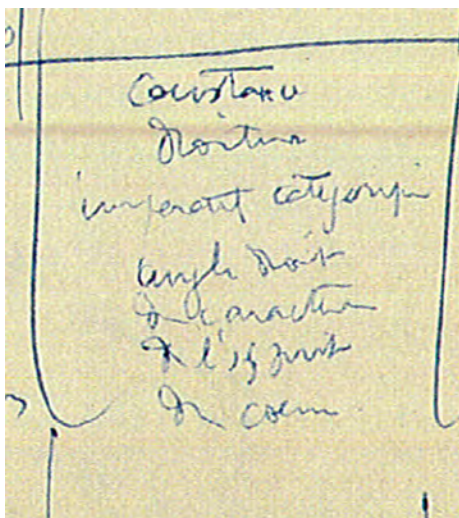 constance
droiture
impératif catégorique
angle droit
du caractère
de l'esprit
du coeur